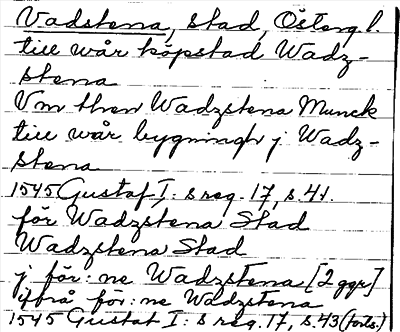 Vadstena, stad, Östergl.
till wår köpstad Wadz-
stena
Vm then Wadzstena Munck
till wår bygningh j Wadz-
stena
1545 Gustaf I:s reg. 17, s 41.
för Wadzstena Stad
Wadzstena Stad
j för:ne Wadzstena [2 ggr]
ifrå för:ne Wadzstena
1545 Gustaf I:s reg. 17, s 43 (forts.)